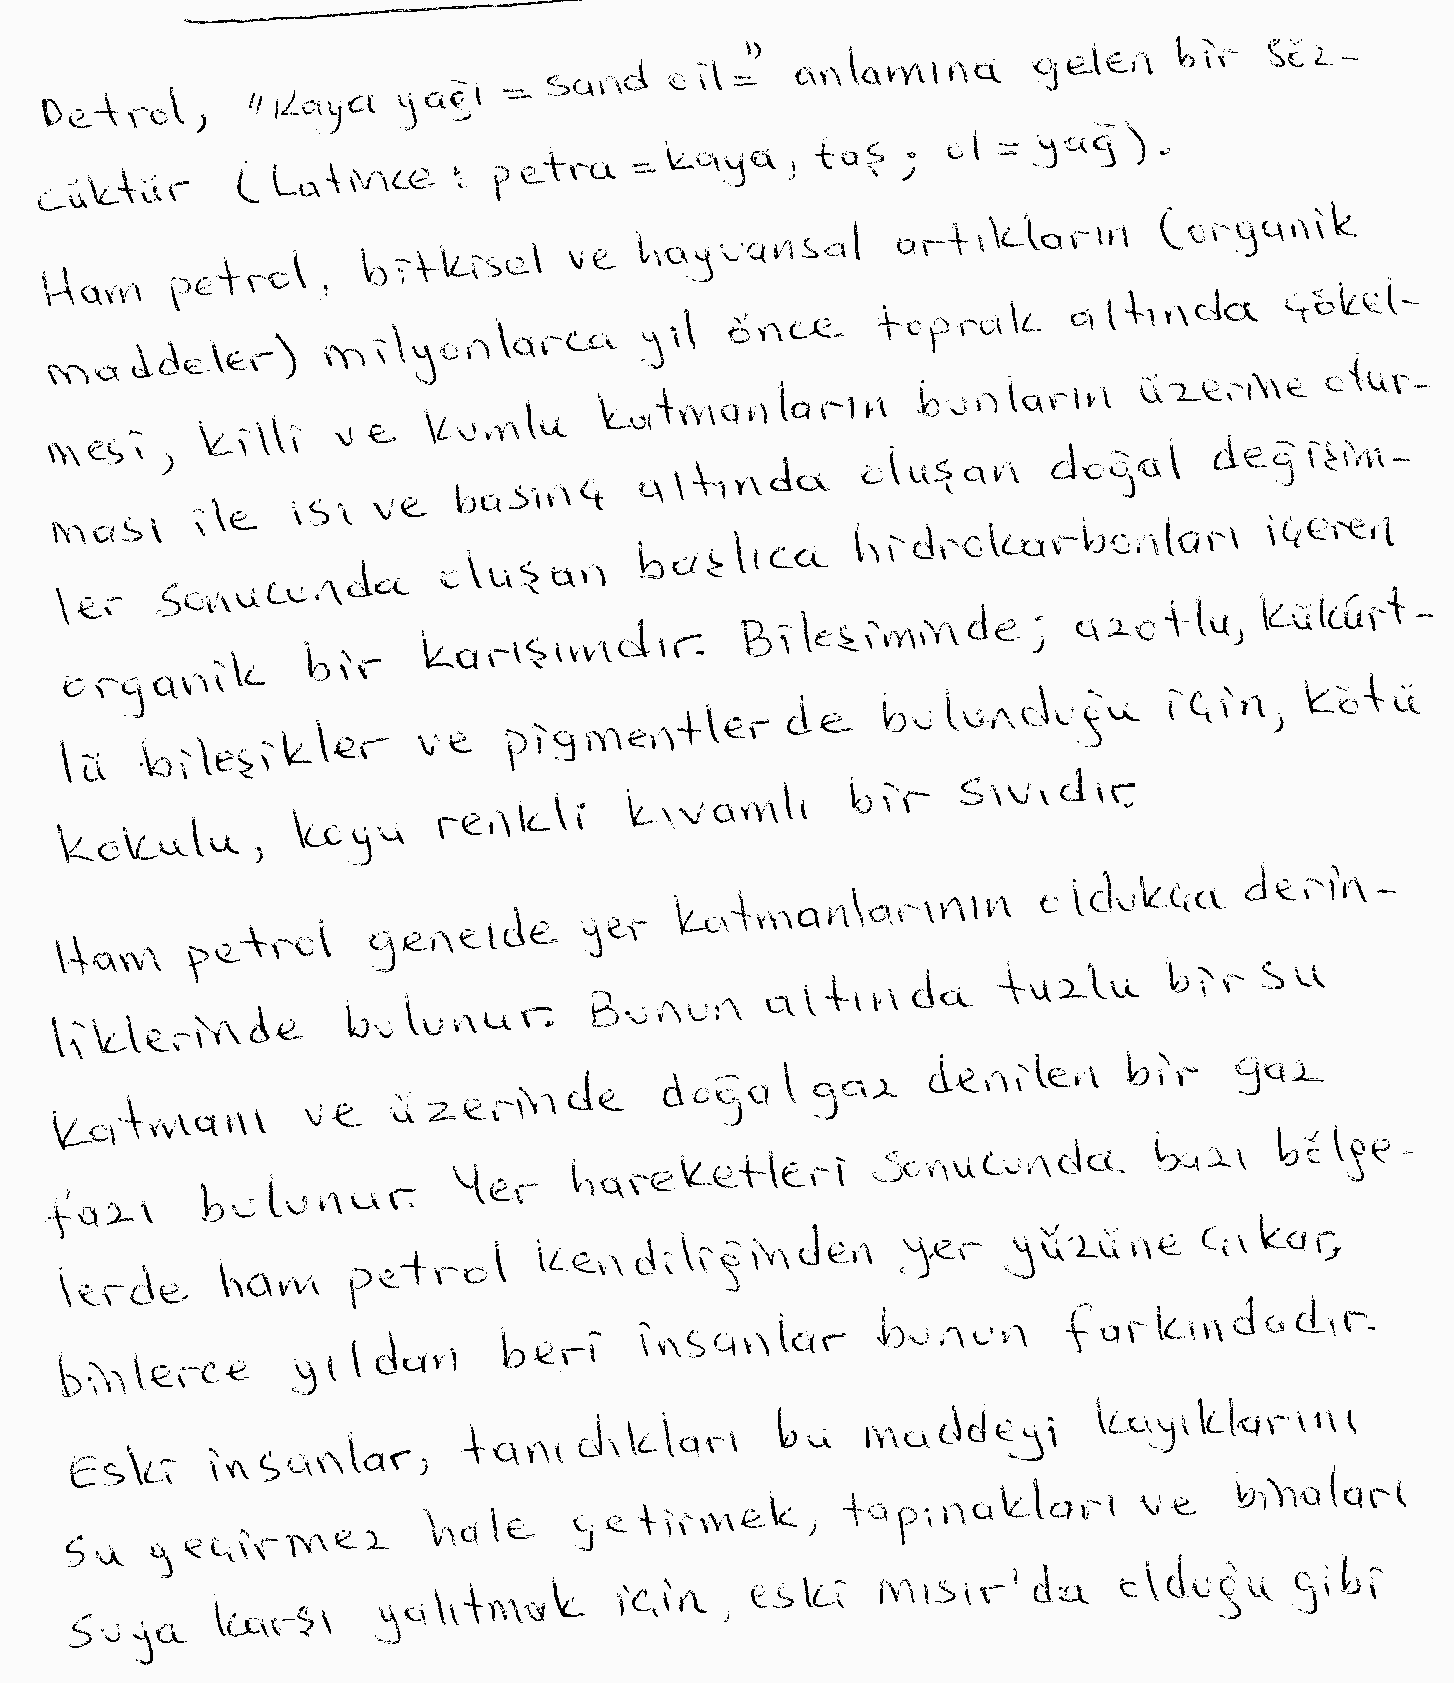 Petrol, "Kaya yağı = sand oil=" anlamına gelen bir söz-
cüktür (Latince : petra = kaya, taş ; ol = yağ).
Ham petrol, bitkisel ve hayvansal artıkların (organik
maddeler) milyonlarca yıl önce toprak altında çökel-
mesi, killi ve kumlu katmanların bunların üzerine otur-
ması ile ısı ve basınç altında oluşan doğal değişim-
ler sonucunda oluşan başlıca hidrokarbonları içeren
organik bir karışımdır. Bileşiminde; azotlu, kükürt-
lü bileşikler ve pigmentler de bulunduğu için, kötü
kokulu, koyu renkli kıvamlı bir sıvıdır.
Ham petrol genelde yer katmanlarının oldukça derin-
liklerinde bulunur. Bunun altında tuzlu bir su
katmanı ve üzerinde doğal gaz denilen bir gaz
fazı bulunur. Yer hareketleri sonucunda bazı bölge-
lerde ham petrol kendiliğinden yer yüzüne çıkar,
binlerce yıldan beri insanlar bunun farkındadır.
Eski insanlar, tanıdıkları bu maddeyi kayıklarını
su geçirmez hale getirmek, tapınakları ve binaları
suya karşı yalıtmak için, eski mısır'da olduğu gibi